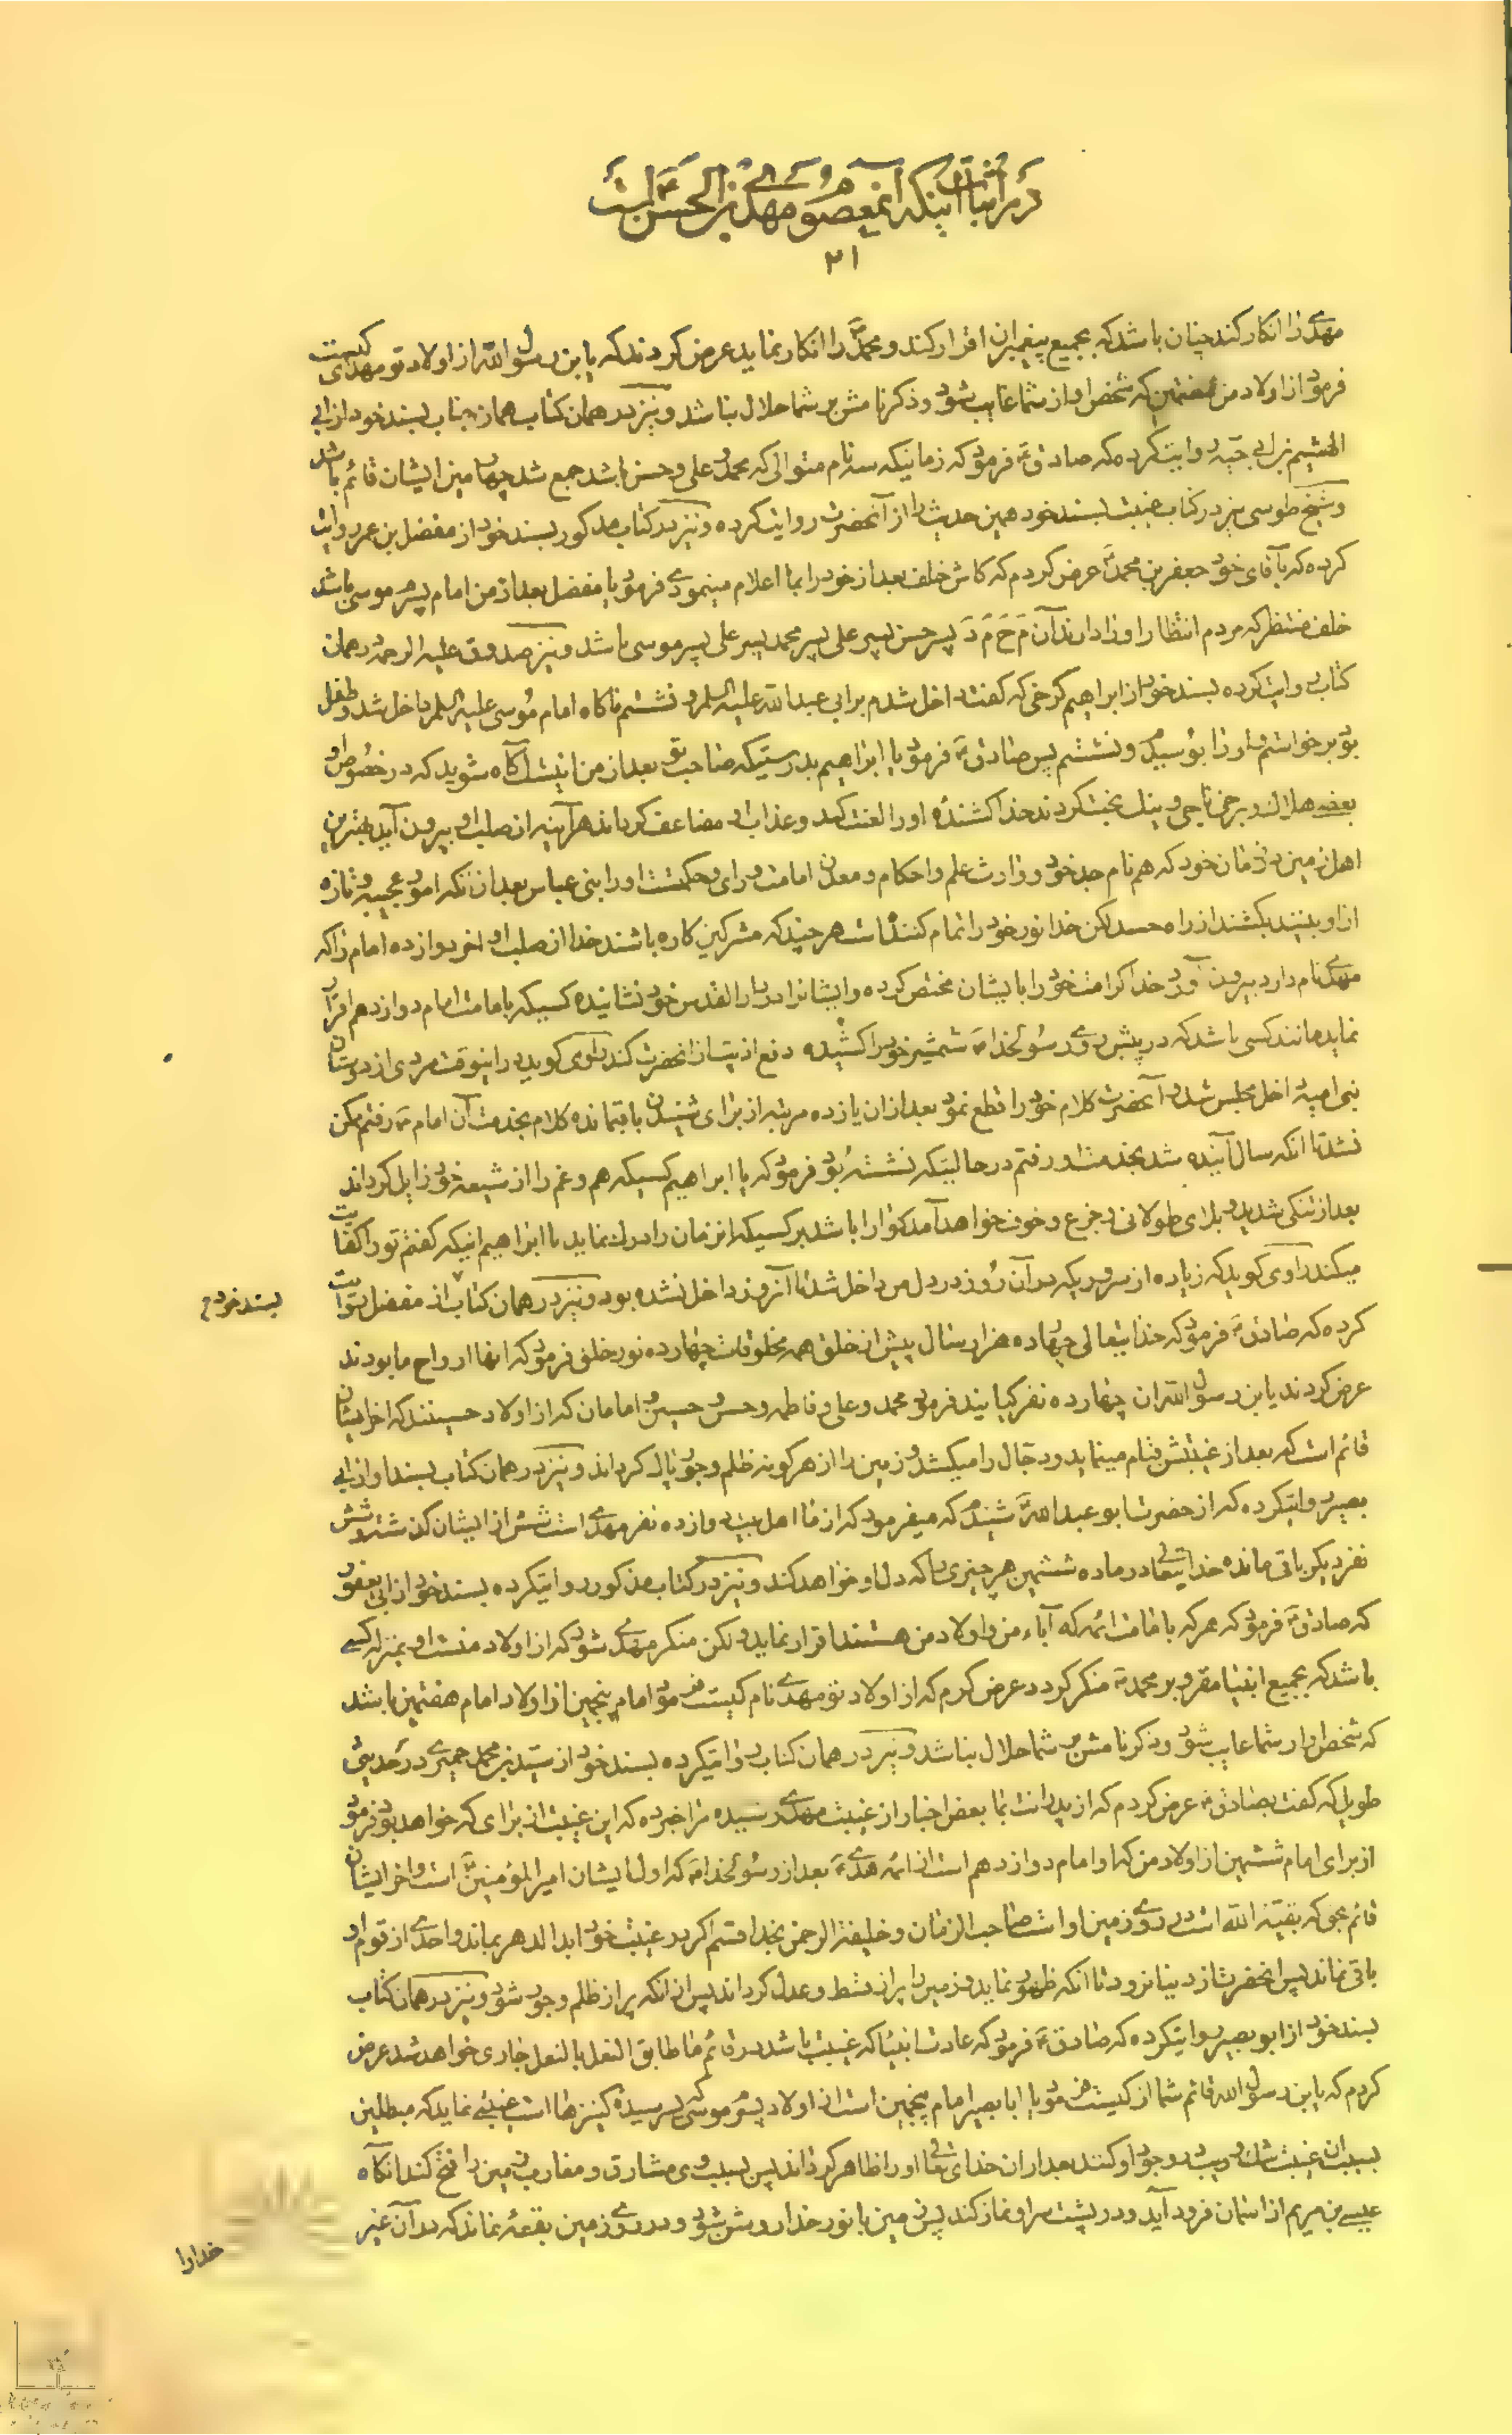 در اثبات اینکه آنمعصوم مهدی بن الحسن است
۲۱
مهدی را انکار کند چنان باشد که بجمیع پیغمبران اقرار کند و محمد را انکار نماید عرض کردند که یابن رسول الله از اولاد تو مهدی کیست
فرمود از اولاد من هفتمین که شخص او از شما غایب شود و ذکر نامش بر شما حلال نباشد و نیز در همان کتاب همان جناب بسند خود از ابی
الهیثم بن ابی حبه روایت کرده که صادق ع فرمود که زمانیکه سه نام متوالی که محمد و علی و حسن باشد جمع شد چهارمین ایشان قائم باشد
و شیخ طوسی نیز در کتاب غیبت بسند خود همین حدیث را از آنحضرت روایت کرده و نیز در کتاب مذکور بسند خود از مفضل بن عمر روایت
کرده که بآقای خود جعفر بن محمد ع عرض کردم که کاش خلف بعد از خود را بما اعلام مینمودی فرمود یا مفضل بعد از من امام پسرم موسی باشد
خلف منتظر که مردم انتظار او را دارند آن م ح م د پسر حسن پسر علی پسر محمد پسر علی پسر موسی باشد و نیز صدوق علیه الرحمه در همان
کتاب روایت کرده بسند خود از ابراهیم کرخی که گفت داخل شدم بر ابی عبدالله علیه السلم و نشستم ناگاه امام موسی علیه السلم داخل شد و طفل
بود برخواستم و او را بوسیدم و نشستم پس صادق ع فرمود یا ابراهیم بدرستیکه صاحب تو بعد از من اینست آگاه شوید که در خصوص او
بعضی هلاک و برخی ناجی و نیک بخت گردند خدا کشندهٔ او را لعنت کند و عذاب او مضاعف گرداند هرآینه از صلب او بیرون آید بهترین
اهل زمین در زمان خود که هم نام جد خود و وارث علم و احکام و معدن امامت و رای و حکمتست او را بنی عباس بعد از آنکه امور عجیبه و تازه
از او ببینند بکشند از راه حسد لکن خدا نور خود را تمام کننده است هر چند که مشرکین کاره باشند خدا از صلب او آخر دوازده امام را که
مهدی نام دارد بیرون آورد خدا کرامت خود را بایشان مختص کرده و ایشانرا در دار القدس خود نشانیده کسیکه بامامت امام دوازدهم اقرار
نماید مانند کسی باشد که در پیش روی رسولخدا ص شمشیر خود را کشیده دفع اذیت از آنحضرت کند راوی گوید در اینوقت مردی از دوستان
بنی امیه داخل مجلس شد و آنحضرت کلام خود را قطع نمود بعد از آن یازده مرتبه از برای شنیدن باقیمانده کلام بخدمت آن امام ع رفتم ممکن
نشد تا آنکه سال آینده شد بخدمت او رفتم در حالتیکه نشسته بود فرمود که یا ابراهیم کسیکه هم و غم را از شیعه خود زایل گرداند
بعد از تنگی شدید و بلای طولانی و جزع و خوف خواهد آمد گوارا باشد بر کسیکه آنزمان را درک نماید یا ابراهیم اینکه گفتم تو را کفایت
میکند راوی گوید که زیاده از سروریکه در آن روز در دل من داخل شد تا آنروز داخل نشده بود و نیز در همان کتاب از مفضل روایت
بسند خود
کرده که صادق ع فرمود که خدایتعالی چهارده هزار سال پیش از خلق همه مخلوقات چهارده نور خلق فرمود که آنها ارواح ما بودند
عرض کردند یابن رسول الله آن چهارده نفر کیانند فرمود محمد و علی و فاطمه و حسن و حسین و امامان که از اولاد حسینند که آخر ایشان
قائم است که بعد از غیبتش قیام مینماید و دجال را میکشد و زمین را از هر گونه ظلم و جور پاک گرداند و نیز در همان کتاب بسند او از ابی
بصیر روایتکرده که از حضرت ابو عبدالله ع شنیدم که میفرمود که از ما اهل بیت دوازده نفر مهدی است شش از ایشان گذشته و شش
نفر دیگر باقی مانده خدایتعالی در ماده ششمین هر چیزی را که دل او خواهد کند و نیز در کتاب مذکور روایتکرده بسند خود از ابی یعفور
که صادق ع فرمود که هر که بامامت ائمه که آباء من و اولاد من هستند اقرار نماید و لکن منکر مهدی شود که از اولاد منست او بمنزله کسی
باشد که بجمیع انبیا مقر و بر محمد ص منکر گردد عرض کردم که از اولاد تو مهدی نام کیست فرمود امام پنجمین از اولاد امام هفتمین باشد
که شخص او از شما غایب شود و ذکر نامش بر شما حلال نباشد و نیز در همان کتاب روایتکرده بسند خود از سید بن محمد حمیری در حدیثی
طویل که گفت بصادق ع عرض کردم که از پدرانت بما بعض اخبار از غیبت مهدی رسیده مرا خبر ده که این غیبت از برای که خواهد بود فرمود
از برای امام ششمین از اولاد من که او امام دوازدهم است از ائمه هدی ع بعد از رسولخدا ص که اول ایشان امیر المؤمنین ع است و آخر ایشان
قائم بحق که بقیة الله است در روی زمین او است صاحب الزمان و خلیفة الرحمن بخدا قسم اگر در غیبت خود ابد الدهر بماند و احدی از قوم او
باقی نماند پس آنحضرت از دنیا نرود تا آنکه ظهور نماید و زمین را پر از قسط و عدل گرداند پس از آنکه پر از ظلم و جور شود و نیز در همان کتاب
بسند خود از ابو بصیر روایتکرده که صادق ع فرمود که عادت انبیا که غیبت باشد در قائم ما طابق النعل بالنعل جاری خواهد شد عرض
کردم که یابن رسول الله قائم شما از کیست فرمود یا ابا بصیر امام پنجمین است از اولاد پسرم موسی که پسر سیدهٔ کنیزها است غیبتی نماید که مبطلین
بسبب آن غیبت شک و ریب در وجود او کنند بعد از آن خدای تعالی او را ظاهر گرداند پس بسبب وی مشارق و مغارب زمین را فتح کند آنگاه
عیسی بن مریم از آسمان فرود آید و در پشت سر او نماز کند پس زمین با نور خدا روشن شود و در روی زمین بقعهٔ نماند که در آن غیر
خدا را